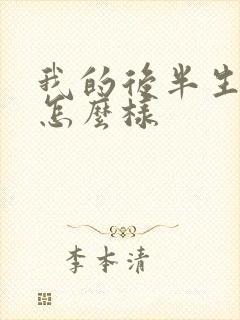 我的後半生
怎麼樣
李本清